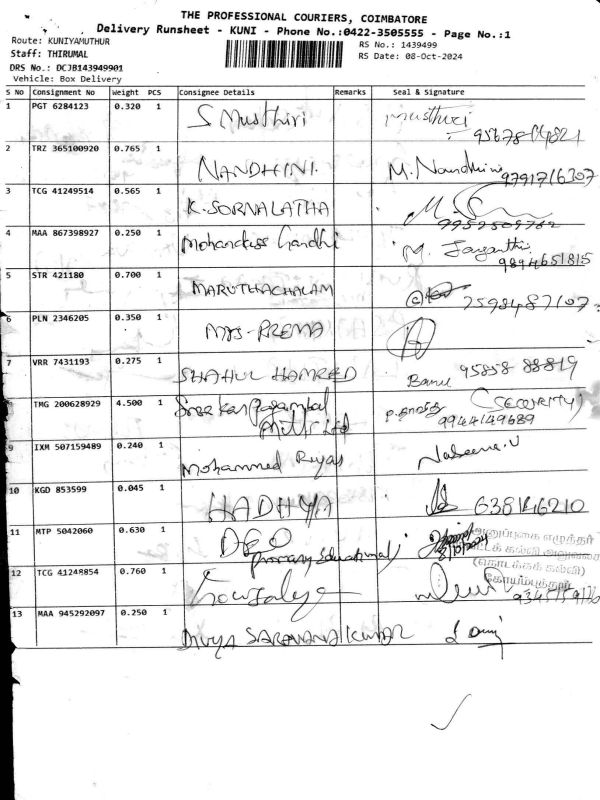 THE PROFESSIONAL COURIERS, COIMBATORE
Delivery Runsheet - KUNI - Phone No.:0422-3505555 - Page No.:1
Route: KUNIYAMUTHUR
RS No.: 1439499
Staff: THIRUMAL
RS Date: 08-Oct-2024
DRS No.: DCJB143949901
Vehicle: Box Delivery
S No Consignment No Weight PCS Consignee Details Remarks Seal & Signature
1 PGT 6284123 0.320 1 S Musthiri
2 TRZ 365100920 0.765 1 NANDHINI. M. Nandhini 9791716307
3 TCG 41249514 0.565 1 K. SORNALATHA 9952509762
4 MAA 867398927 0.250 1 Mohandass Gandhi M. Jayanthi 9894651815
5 STR 421180 0.700 1 MARUTHACHALAM 7598487107
6 PLN 2346205 0.350 1 MRS-PREMA
7 VRR 7431193 0.275 1 SHAHUL HAMEED Banu 95858 88819
8 TMG 200628929 4.500 1 Mills Ltd (SECURITY) 9944149689
9 IXM 507159489 0.240 1 Mohammed Riyas Nabeena.V
10 KGD 853599 0.045 1 HADHYA 638146210
11 MTP 5042060 0.630 1 DEO (primary Educational)
(தொடக்கக் கல்வி)
கோயம்புத்தூர்
12 TCG 41248854 0.760 1
13 MAA 945292097 0.250 1 DIVYA SARAVANAKUMAR